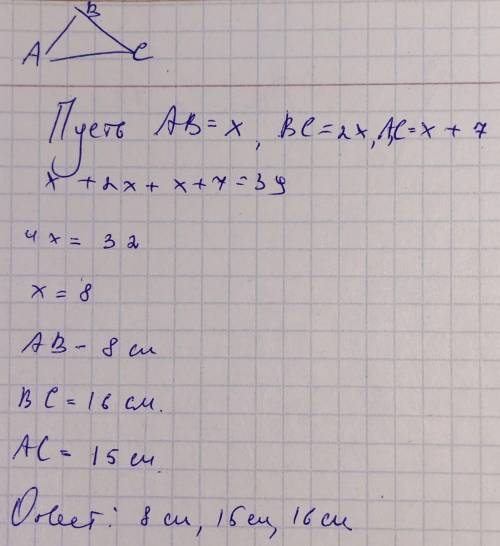 B
A C
Пусть AB = x, BC = 2x, AC = x + 7
x + 2x + x + 7 = 39
4x = 32
x = 8
AB - 8 см
BC = 16 см.
AC = 15 см
Ответ: 8 см, 15 см, 16 см